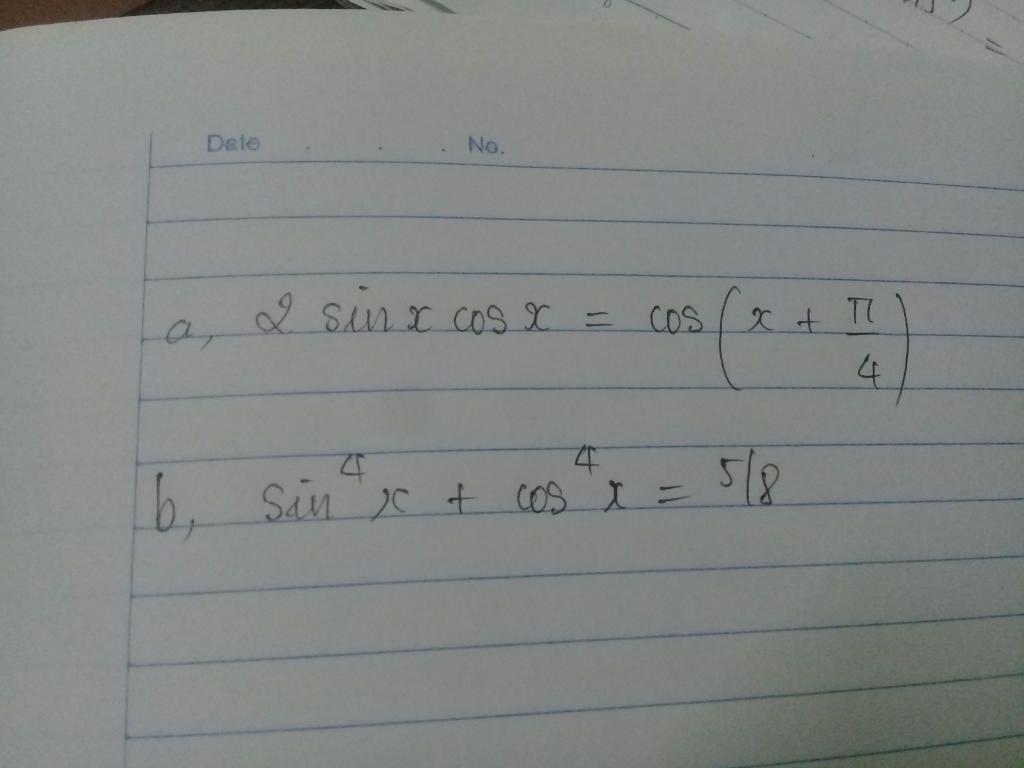 Date . . . No.
a, 2 sin x cos x = cos(x + π/4)
b, sin⁴x + cos⁴x = 5/8